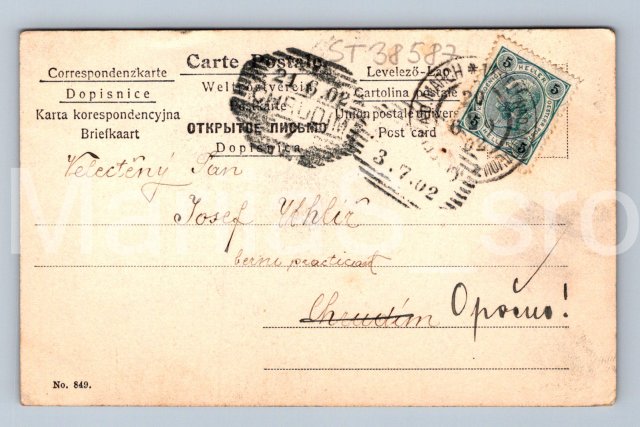 Carte Postale
ST 38587
Correspondenzkarte
Weltpostverein
Levelező-Lap
Dopisnice
Cartolina postale
Karta korespondencyjna
Union postale universelle
Briefkaart
ОТКРЫТОЕ ПИСЬМО
Post card
Dopisnica
21.6.02
CHRUDIM
3.7.02
5 HELLER 5
5 5
Velectěný Pan
Josef Uhlíř
berní practicant
Chrudim Opočno!
No. 849.